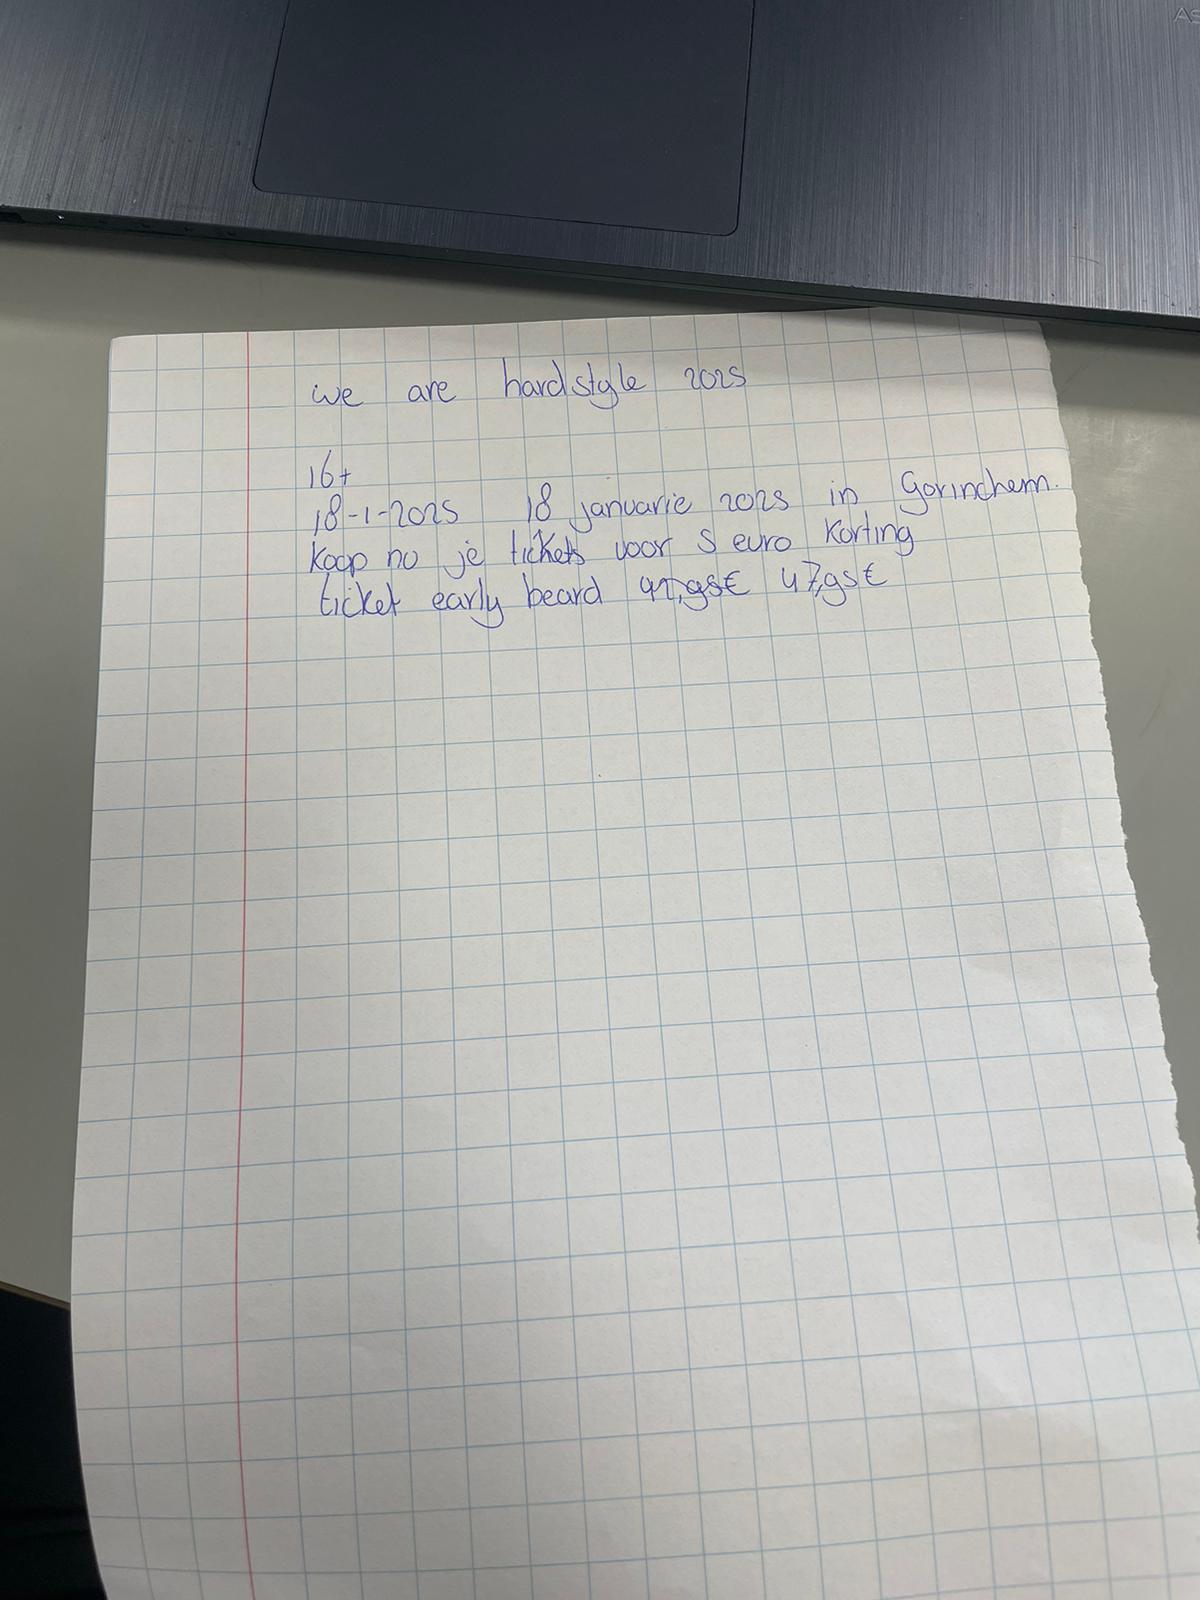 AS
we are hardstyle 2025
16+
18-1-2025 18 januarie 2025 in Gorinchem.
koop no je tickets voor 5 euro korting
ticket early beard 42,95€ 47,95€